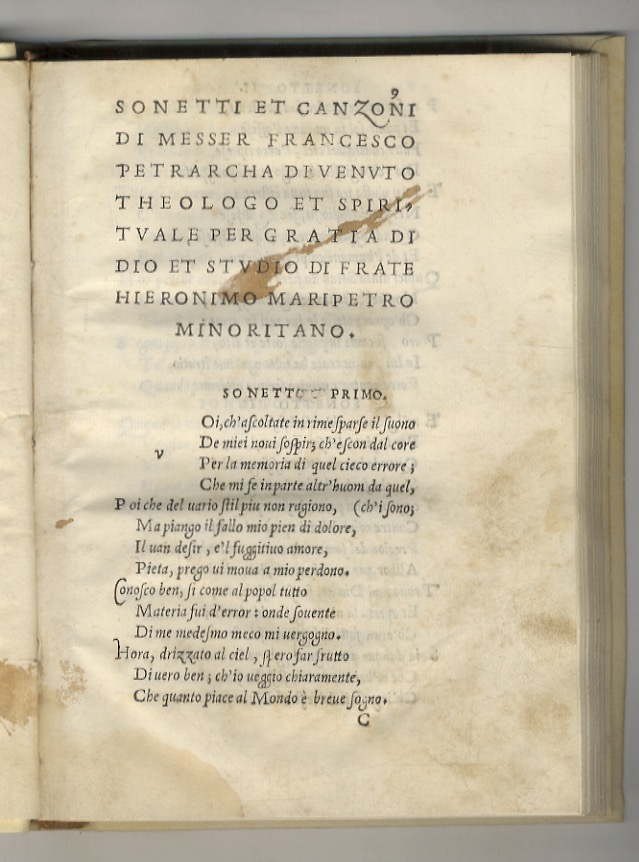 9
SONETTI ET CANZONI
DI MESSER FRANCESCO
PETRARCHA DIVENVTO
THEOLOGO ET SPIRI,
TVALE PER GRATIA DI
DIO ET STVDIO DI FRATE
HIERONIMO MARIPETRO
MINORITANO.
SONETTO PRIMO.
V
Oi, ch'aſcoltate in rime ſparse il ſuono
De miei noui ſoſpir; ch'eſcon dal core
Per la memoria di quel cieco errore;
Che mi fe in parte altr'huom da quel,
Poi che del uario ſtil piu non ragiono, (ch'i ſono;
Ma piango il fallo mio pien di dolore,
Il uan deſir, e'l fuggitiuo amore,
Pieta, prego ui moua a mio perdono.
Conoſco ben, ſi come al popol tutto
Materia fui d'error: onde ſouente
Di me medeſmo meco mi uergogno.
Hora, drizzato al ciel, ſpero far frutto
Di uero ben; ch'io ueggio chiaramente,
Che quanto piace al Mondo è breue ſogno.
C